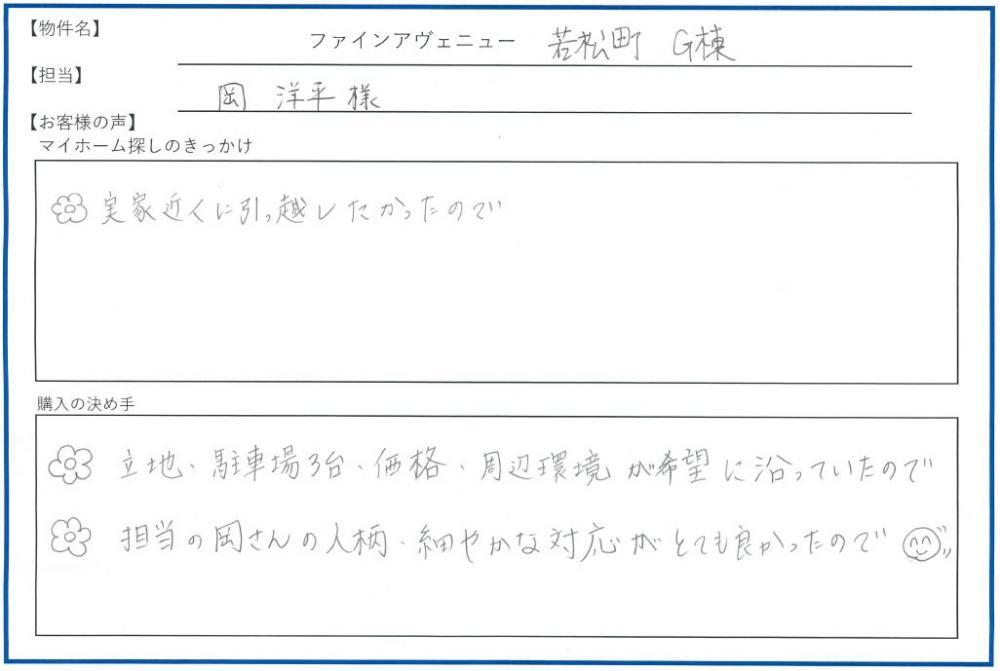 【物件名】
ファインアヴェニュー 若松町 G棟
【担当】
岡 洋平 様
【お客様の声】
マイホーム探しのきっかけ
実家近くに引っ越したかったので
購入の決め手
立地・駐車場3台・価格・周辺環境が希望に沿っていたので
担当の岡さんの人柄・細やかな対応がとても良かったので